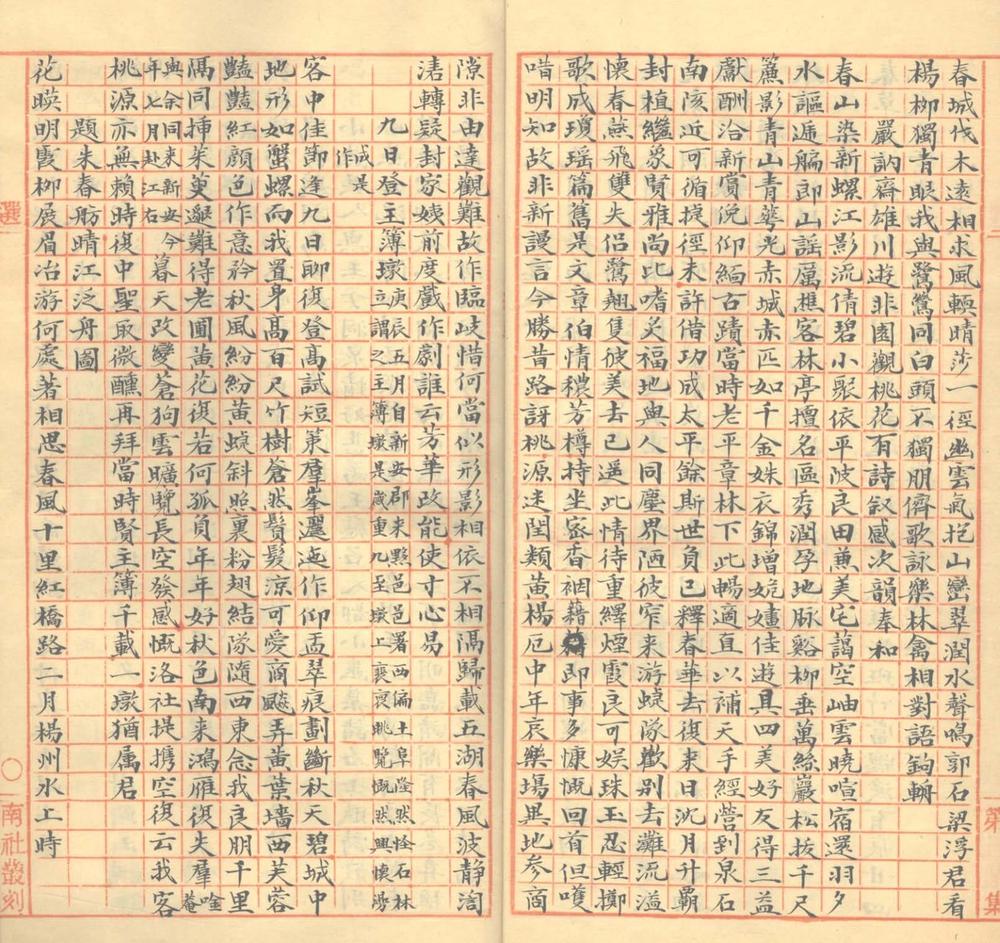 春城伐木遠相求風輭晴莎一徑幽雲氣抱山巒翠潤水聲鳴郭石梁浮君看
楊柳獨青眼我與鷺鷥同白頭不獨朋儕歌詠樂林禽相對語鉤輈
嚴訥齋雄川遊非園觀桃花有詩叙感次韻奉和
春山染新螺江影流倩碧小聚依平波良田兼美宅藹空岫雲曉喧宿還羽夕
水謳遞艑郎山謡屬樵客林亭擅名區秀潤孕地脈谿柳垂萬絲巖松拔千尺
簾影青山青華光赤城赤匹如千金姝衣錦增婉嫿佳遊具四美好友得三益
獻酬洽新賞況仰緬古蹟當時老平章林下此暢適直以補天手經營到泉石
南陔近可循捷徑未許借功成太平餘斯世負已釋春華去復来日沈月升霸
封植繼象賢雅尚比嗜炙福地與人同塵界陋彼窄来游蜨隊歡别去灘流溢
懷春燕飛雙失侣鷺翹隻彼美去已遥此情待重繹煙霞良可娱珠玉忍輕擲
歌成瓊瑶篇舊是文章伯情穠芳樽持坐密香裀藉即事多慷慨回首但嚄
唶明知故非新謾言今勝昔路訝桃源迷閏類黄楊厄中年哀樂場異地参商
第 集
隙非由達觀難故作臨岐惜何當似形影相依不相隔歸載五湖春風波静淘
渚轉疑封家姨前度戲作劇誰云芳華改能使寸心易
九日登主簿墩
庚辰五月自新安郡来黟邑邑署西偏土阜隆然怪石林
立謂之主簿墩是歲重九至墩上眺覽慨然興懷漫
成是
作
客中佳節逢九日聊復登高試短策羣峯邐迤作仰盂翠痕劃斷秋天碧城中
地形如蟹螺而我置身高百尺竹樹蒼然鬢髮凉可愛商飈弄黄葉墻西芙蓉
豔豔紅顏色作意矜秋風紛紛黄蜨斜照裏粉翅結隊隨西東念我良朋千里
隔同揷茱萸難得老圃黄花復若何孤負年年好秋色南来鴻雁復失羣
唫
庵
與余同来新安今
年七月赴江右
暮天改變蒼狗雲曠覽長空發感慨洛社提攜空復云我客
桃源亦無賴時復中聖取微醺再拜當時賢主簿千載一墩猶属君
題朱春舫晴江泛舟圖
花暎明霞柳展眉冶游何處著相思春風十里紅橋路二月楊州水上時
選
南社叢刻